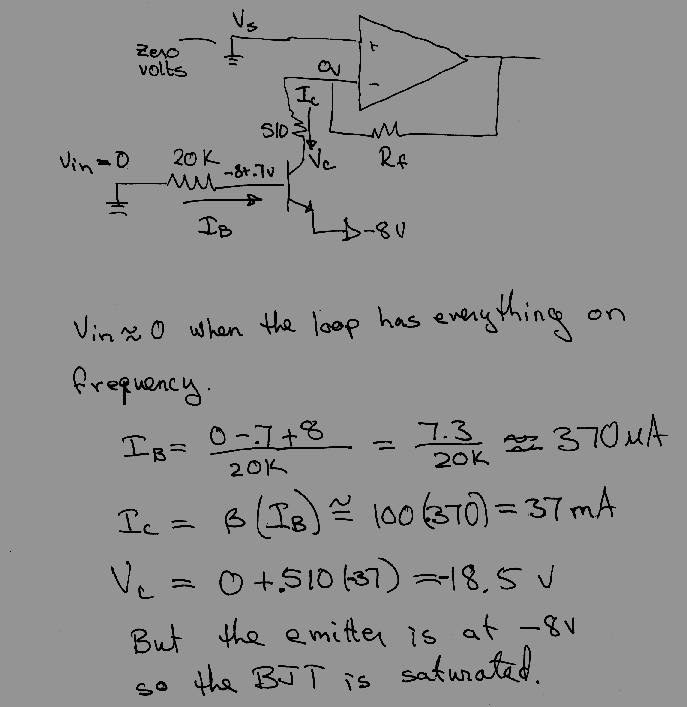 Vs
Zero
volts
+
0V
-
Ic
510
Vc
Rf
Vin = 0
20K
-8+.7v
IB
-8V
Vin ≈ 0 when the loop has everything on
frequency.
IB = 0-.7+8 / 20K = 7.3 / 20K ≈ 370 uA
Ic = β(IB) ≅ 100(.370) = 37 mA
Vc = 0 + .510(-37) = -18.5 V
But the emitter is at -8v
so the BJT is saturated.